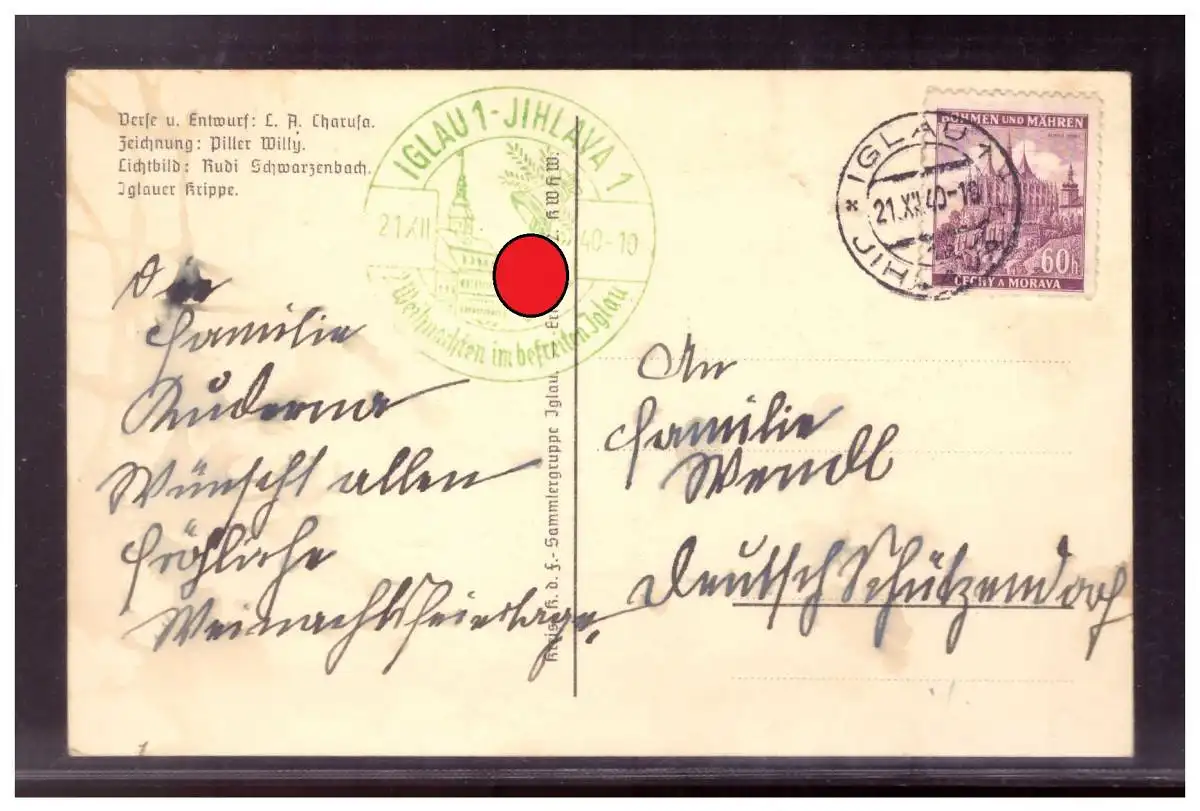 Verse u. Entwurf: L. A. Charusa.
Zeichnung: Piller Willy.
Lichtbild: Rudi Schwarzenbach.
Iglauer Krippe.
IGLAU 1 - JIHLAVA 1
21.XII 40-10
Weihnachten im befreiten Iglau
IGLAU 1
21.XII.40-10
BÖHMEN UND MÄHREN
60h
ČECHY A MORAVA
Die
Familie
Kuderna
Wünscht allen
fröhliche
Weinachtsfeiertage.
Kreis K. d. F.- Sammlergruppe Iglau.
KWHW:
An
Familie
Wendl
Deutsch Schützendorf